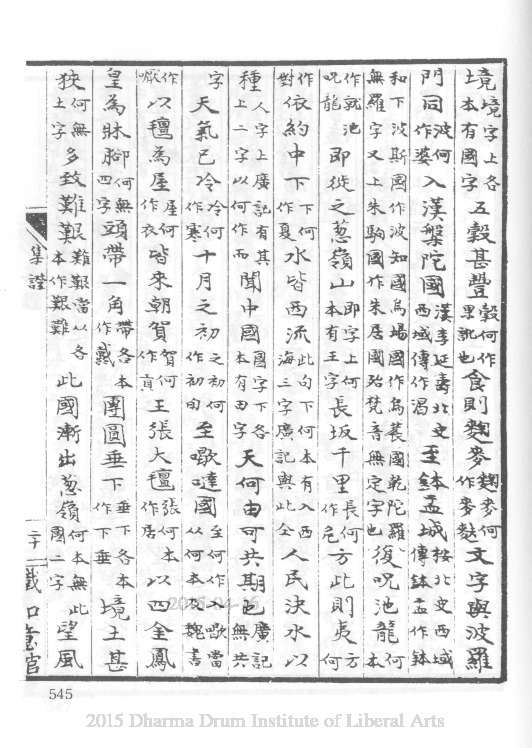 境境字上各本有國字五穀甚豐穀何作果訛也食則麨麥麨麥何作麥麨文字與波羅
門同波何作婆入漢盤陀國漢李延壽北史西域傳作渴至鉢盂城按北史西域傳鉢盂作鉢
和下波斯國作波知國烏場國作烏萇國乾陀羅無羅字又上朱駒國作朱居國殆梵音無定字也復呪池龍何本
作就池呪龍即徙之葱嶺山即字上何本有王字長坂千里長何作危方此則夷方何
作對依約中下下何作夏水皆西流此句下何本有入西海三字廣記與此仝人民決水以
種人字上廣記有其上二字以何作而聞中國國字下各本有田字天何由可共期也廣記無共
字天氣已冷冷何作寒十月之初之初何作初旬至嚈噠國至何作入嚈當從何本及魏書
作嚈以氊為屋屋何作衣皆來朝賀賀何作貢王張大氊張何本作居以四金鳳
皇為牀腳何無四字頭帶一角帶各本作戴團圓垂下垂下各本作下垂境土甚
狹何無土字多致難艱難艱當從各本作艱難此國漸出葱嶺何本無此國二字望風
集證
二十一
545
2015 Dharma Drum Institute of Liberal Arts